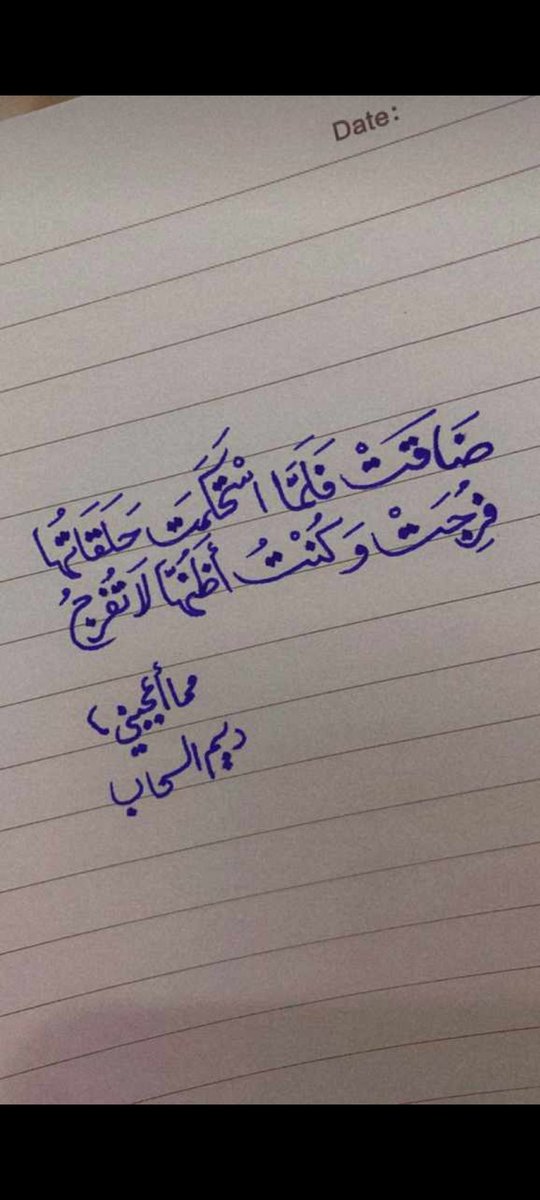 Date:
ضَاقَتْ فَلَمَّا اسْتَحْكَمَت حَلَقَاتُهَا
فُرِجَتْ وَكُنْتُ أَظُنُّهَا لَا تُفْرَجُ
مما أعجبني،
ديم السحاب